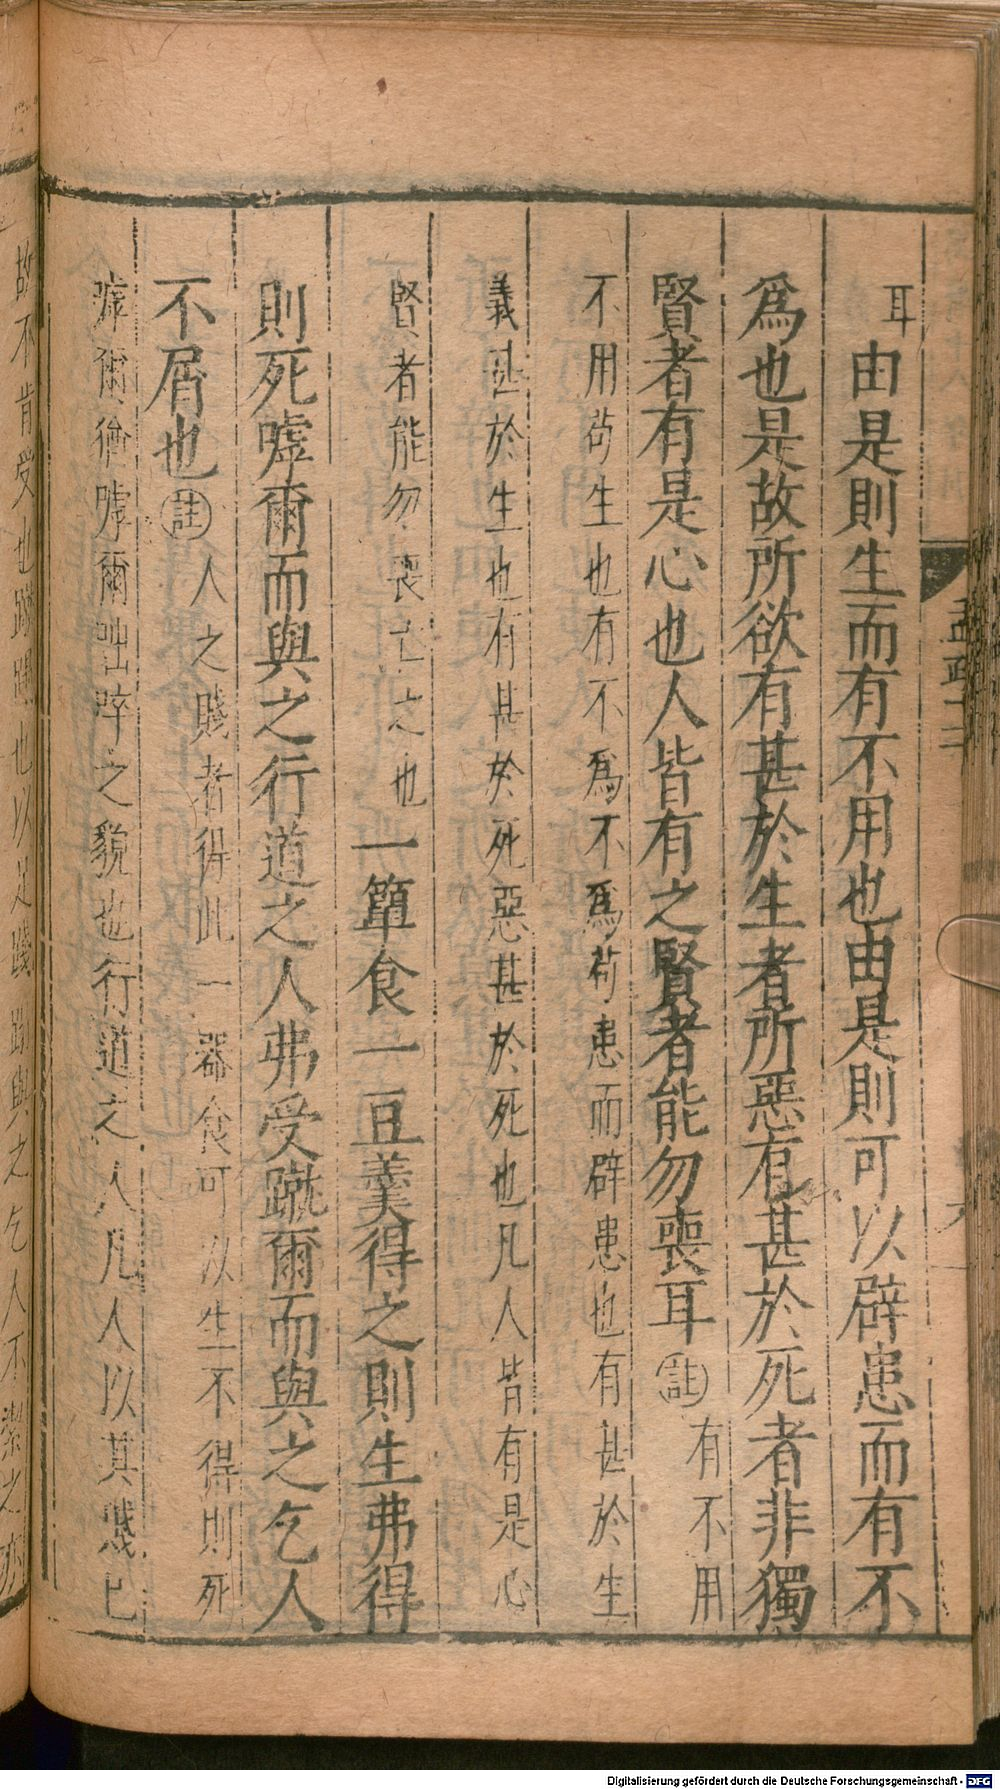 耳由是則生而有不用也由是則可以辟患而有不
爲也是故所欲有甚於生者所惡有甚於死者非獨
賢者有是心也人皆有之賢者能勿喪耳註有不用
不用苟生也有不爲不爲苟患而辟患也有甚於生
義甚於生也有甚於死惡甚於死也凡人皆有是心
賢者能勿喪亡之也一簞食一豆羹得之則生弗得
則死嘑爾而與之行道之人弗受蹴爾而與之乞人
不屑也註人之賤者得此一器食可以生不得則死
嘑爾猶嘑爾咄啐之貌也行道之人凡人以其賤己
故不肯受也蹴蹋也以足踐蹋與之乞人不潔之亦
Digitalisierung gefördert durch die Deutsche Forschungsgemeinschaft - DFG